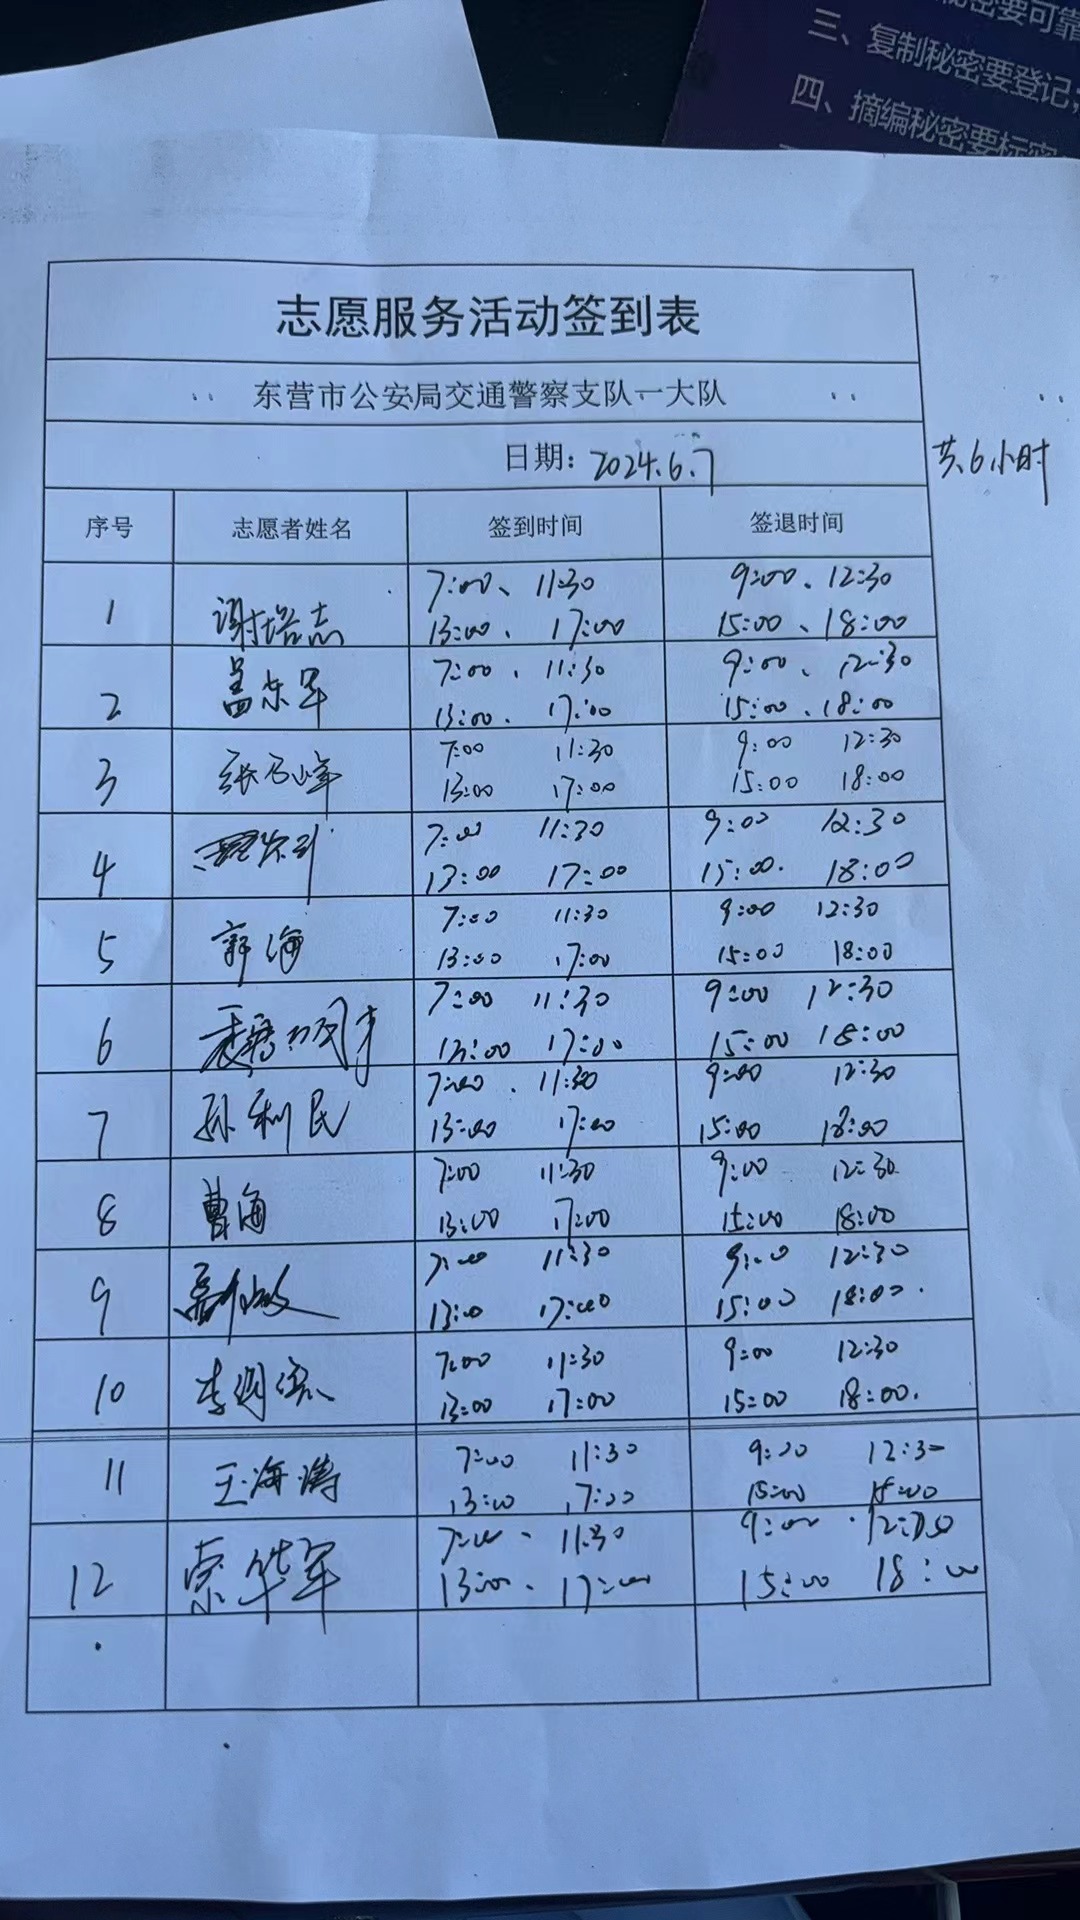 密要可靠
三、复制秘密要登记;
四、摘编秘密要标密
志愿服务活动签到表
东营市公安局交通警察支队一大队
日期: 2024.6.7
共6小时
序号 志愿者姓名 签到时间 签退时间
7:00、 11:30 9:00、12:30
1 谢培志 13:00、 17:00 15:00、18:00
7:00、 11:30 9:00、 12:30
2 孟东军 13:00、 17:00 15:00、18:00
7:00 11:30 9:00 12:30
3 张 峰 13:00 17:00 15:00 18:00
7:00 11:30 9:00 12:30
4 13:00 17:00 15:00. 18:00
7:00 11:30 9:00 12:30
5 海 13:00 17:00 15:00 18:00
7:00 11:30 9:00 12:30
6 13:00 17:00 15:00 18:00
7:00、 11:30 9:00 12:30
7 孙利民 13:00 17:00 15:00 18:00
7:00 11:30 9:00 12:30
8 曹海 13:00 17:00 15:00 18:00
7:00 11:30 9:00 12:30
9 13:00 17:00 15:00 18:00.
7:00 11:30 9:00 12:30
10 李 13:00 17:00 15:00 18:00.
7:00 11:30 9:00 12:30
11 王海涛 13:00 17:00 15:00 18:00
7:00、 11:30 9:00、12:30
12 索华军 13:00、 17:00 15:00 18:00